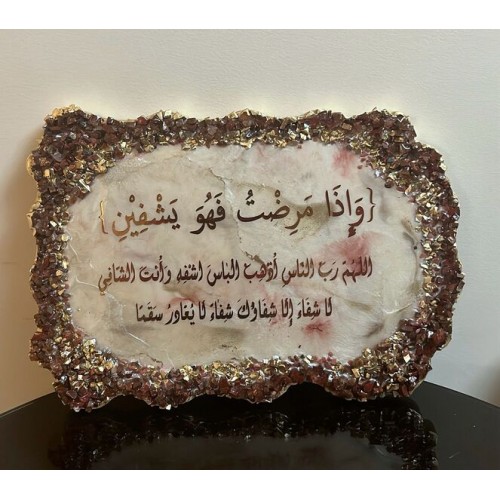 {وَإِذَا مَرِضْتُ فَهُوَ يَشْفِيْنِ}
اللهُمّ رَبّ الناسِ أذهبَ الباسَ اشفِهِ وَأنتَ الشافي
لَا شِفَاءَ إلّا شِفَاؤكَ شِفَاءً لَا يُغَادرُ سَقَمًا